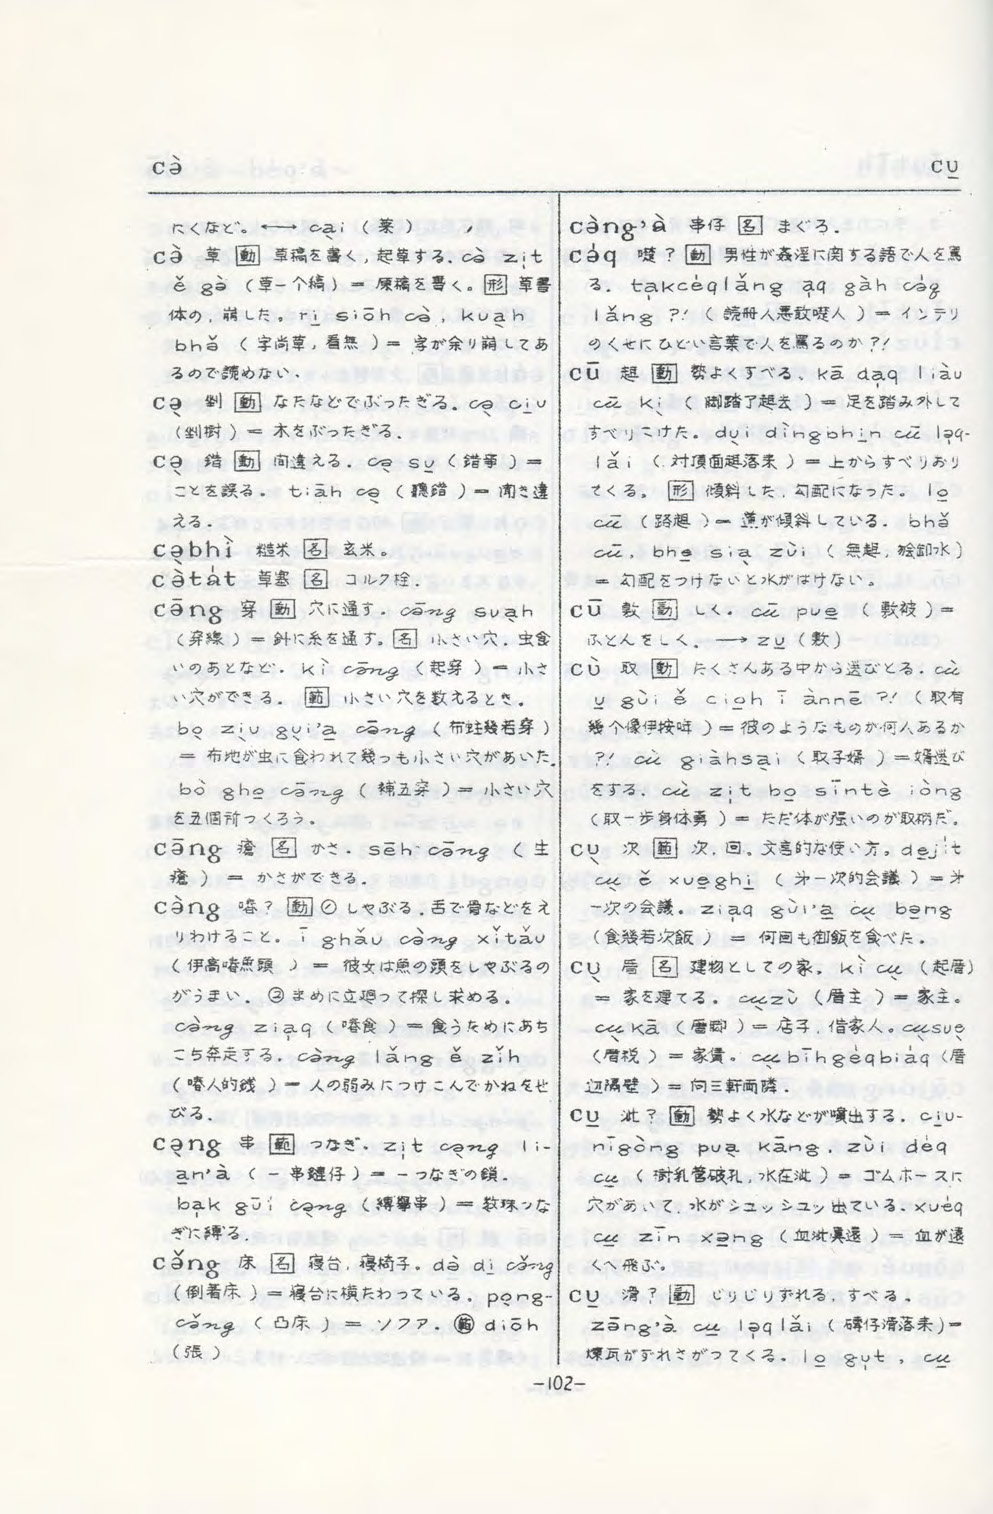 cà
cu̱
にくなど。→ cại (菜)
cə̀ 草 動 草稿を書く, 起草する. cə̀ zi̍t
ě gə̀ (草一个稿) = 原稿を書く。形 草書
体の, 崩した. ri̱ siōh cə̀, kuạ̄h
bhə̌ (字尚草, 看無) = 字が余り崩してあ
るので読めない.
cə̣ 剉 動 なたなどでぶったぎる. cə̣ ciụ
(剉樹) = 木をぶったぎる.
cə̣ 錯 動 間違える. cə̣ su̱ (錯事) =
ことを誤る. tiāh cə̣ (聽錯) = 聞き違
える.
cə̣bhì 糙米 名 玄米。
cə̀tát 草塞 名 コルク栓.
cə̄ng 穿 動 穴に通す. cə̄ng suạh
(穿線) = 針に糸を通す. 名 小さい穴, 虫食
いのあとなど. kì cə̄ng (起穿) = 小さ
い穴ができる. 範 小さい穴を数えるとき.
bọ ziụ guì'a cə̄ng (布蛀幾若穿)
= 布地が虫に食われて幾つも小さい穴があいた.
bò gho̱ cə̄ng (補五穿) = 小さい穴
を五個所つくろう.
cə̄ng 瘡 名 かさ. sēh cə̄ng (生
瘡) = かさができる.
cə̀ng 嗍? 動 ㊀ しゃぶる, 舌で骨などをえ
りわけること. ī ghǎu cə̀ng xǐtǎu
= 彼女は魚の頭をしゃぶるの
がうまい. ㊁ まめに立廻って探し求める.
cə̀ng zia̍q = 食うためにあち
こち奔走する. cə̀ng lǎng ě zǐh
= 人の弱みにつけこんでかねをせ
びる.
cə̣ng 串 範 つなぎ. zi̍t cə̣ng li-
ān'à (一串鏈仔) = 一つなぎの鎖
ba̍k gūi cə̣ng = 数珠つな
ぎに縛る.
cə̌ng 床 名 寝台, 寝椅子. də̀ di̱ cə̌ng
(倒着床) = 寝台に横たわっている. pọng-
cə̌ng (凸床) = ソファ. 範 diōh
(張)
cə̀ng'à 串仔 名 まぐろ.
cəq 動 男性が姦淫に関する語で人を罵
る. ta̍kcéqlǎng ạq gàh cəq
lǎng ?! = インテリ
のくせにひどい言葉で人を罵るのか?!
cū 趄 動 勢よくすべる. kā da̍q liàu
cū kị (脚踏了趄去) = 足を踏み外して
すべりこけた. dụi dìngbhi̱n cū lə̍q-
lǎi (対頂面趄落来) = 上からすべりおり
てくる。形 傾斜した, 勾配になった. lo̱
cū (路趄) = 道が傾斜している. bhə̌
cū, bhe̱ sia̱ zùi (無趄, 袂卸水)
= 勾配をつけないと水がはけない.
cū 敷 動 しく. cū pue̱ (敷被) =
ふとんをしく. → zū (敷)
cù 取 動 たくさんある中から選びとる. cù
u̱ gùi ě cio̱h ī ànnē ?! (取有
幾个像伊按呢) = 彼のようなものが何人あるか
?! cù giàhsại (取子婿) = 婿選び
をする. cù zi̍t bo̱ sīntè iòng
(取一步身体勇) = ただ体が強いのが取柄だ.
cụ 次 範 次, 回. 文言的な使い方. dẹi̍t
cụ ě xue̱ghi̱ (第一次的会議) = 第
一次の会議. zia̍q gùi'a cụ bə̱ng
(食幾若次飯) = 何回も御飯を食べた.
cụ 厝 名 建物としての家. kì cụ (起厝)
= 家を建てる. cụzù (厝主) = 家主。
cụkā (厝脚) = 店子, 借家人. cụsuẹ
(厝税) = 家賃。cụbīhgéqbiáq (厝
辺隔壁) = 向三軒両隣.
cu̱ 泚? 動 勢よく水などが噴出する. ciu̱-
nīgòng puạ kāng, zùi déq
cu̱ (樹乳管破孔, 水在泚) = ゴムホースに
穴があいて, 水がシュッシュッ出ている. xuéq
cu̱ zīn xə̱ng (血泚真遠) = 血が遠
くへ飛ぶ.
cu̱ 滑? 動 じりじりずれる, すべる.
zə̄ng'à cu̱ lə̍q lǎi (磚仔滑落来) =
煉瓦がずれさがってくる. lo̱ gu̍t, cu̱
-102-